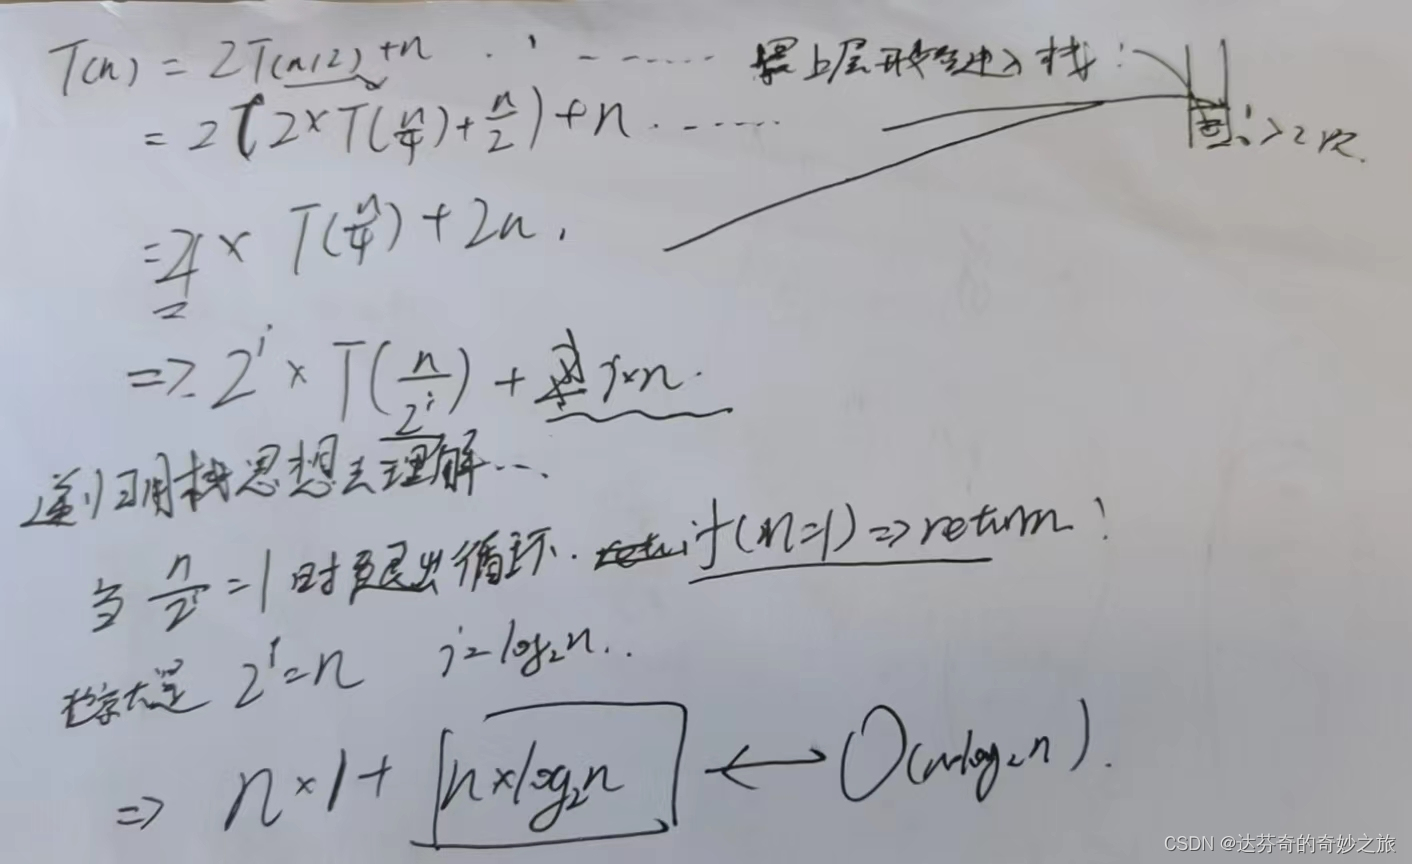 T(n) = 2T(n/2)+n . ' ------ 最上层形参进入栈:
= 2(2×T(n/4)+n/2)+n. ------
=4× T(n/4)+2n.
=> 2^i × T(n/2^i) + i×n.
递归用栈思想去理解...
当 n/2^i =1时退出循环. if(n=1)=>return!
2^i=n i=log₂n..
=> n×1+ n×log₂n ⟷ O(nlog₂n).
CSDN @达芬奇的奇妙之旅